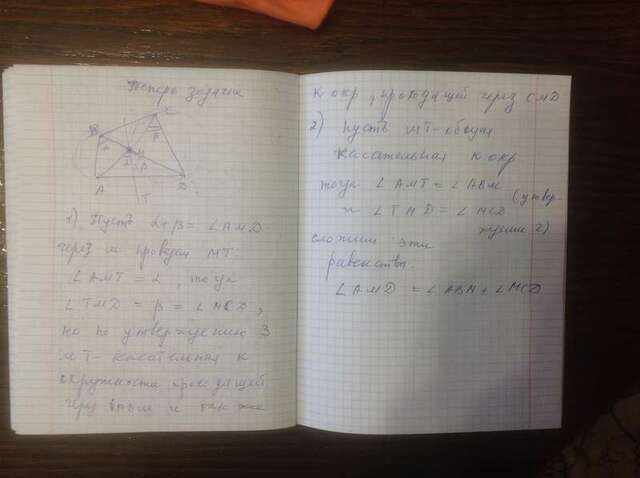 Теперь задача
C
B
β
α
M
α β
A
T
D
1) Пусть α+β = ∠AMD
через M проведём MT:
∠AMT = α, тогда
∠TMD = β = ∠MCD,
но по утверждению 3
MT - касательная к
окружности проходящей
через ABM и так же
к окр, проходящей через CMD
2) Пусть MT - общая
касательная к окр
тогда ∠AMT = ∠ABM
и ∠TMD = ∠MCD
(утвер-
ждение 2)
сложим эти
равенства.
∠AMD = ∠ABM + ∠MCD